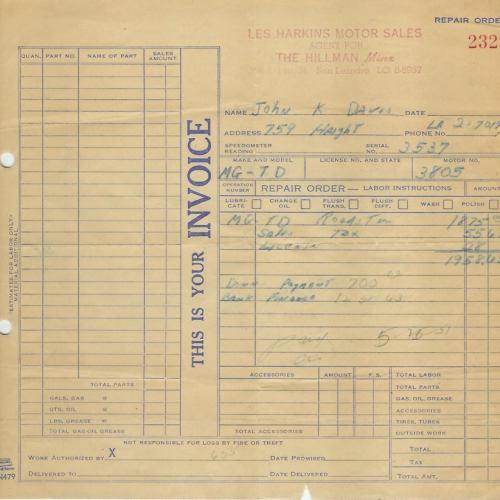 REPAIR ORDE
LES HARKINS MOTOR SALES
AGENT FOR
THE HILLMAN Minx
San Leandro, LO. 8-5957
232
QUAN. PART NO. NAME OF PART SALES AMOUNT
NAME John K Davis DATE
ADDRESS 759 Haight PHONE No. LA 2-7017
SPEEDOMETER READING SERIAL NO. 3537
MAKE AND MODEL LICENSE NO. AND STATE MOTOR NO.
MG-TD 3805
OPERATION NUMBER REPAIR ORDER — LABOR INSTRUCTIONS AMOUN
LUBRICATE CHANGE OIL FLUSH TRANS. FLUSH DIFF. WASH POLISH
MG TD Roadster 1875
Sales Tax 556
License
1958.6
Down Payment 700
Bank Finance
5-26-51
THIS IS YOUR INVOICE
ESTIMATES FOR LABOR ONLY—
MATERIAL ADDITIONAL
ACCESSORIES AMOUNT F.S. TOTAL LABOR
TOTAL PARTS TOTAL PARTS
GALS. GAS @ GAS, OIL, GREASE
QTS. OIL @ ACCESSORIES
LBS. GREASE @ TIRES, TUBES
TOTAL GAS-OIL GREASE TOTAL ACCESSORIES OUTSIDE WORK
NOT RESPONSIBLE FOR LOSS BY FIRE OR THEFT
TOTAL
WORK AUTHORIZED BY X DATE PROMISED TAX
DELIVERED TO DATE DELIVERED TOTAL AMT.
N479